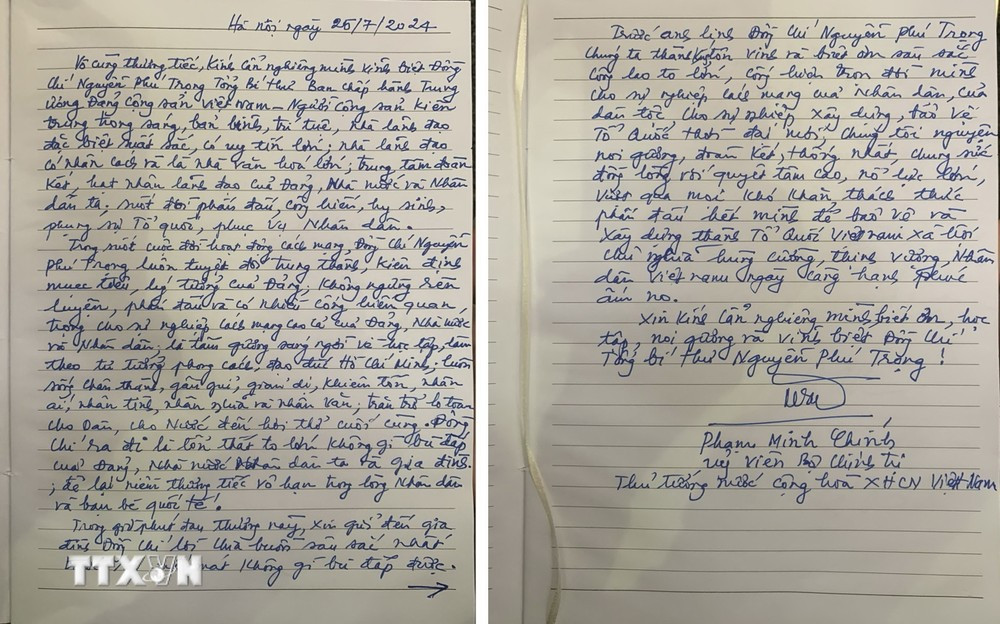 Hà nội ngày 25/7/2024
Vô cùng thương tiếc, Kính cẩn nghiêng mình vĩnh biệt Đồng
Chí Nguyễn Phú Trọng Tổng Bí thư Ban chấp hành Trung
ương Đảng Cộng sản Việt Nam - Người Cộng sản Kiên
trung trong sáng, bản lĩnh, trí tuệ, Nhà lãnh đạo
đặc biệt xuất sắc, có uy tín lớn; nhà lãnh đạo
có nhân cách và là nhà văn hóa lớn; trung tâm đoàn
kết, hạt nhân lãnh đạo của Đảng, Nhà nước và Nhân
dân ta; suốt đời phấn đấu, cống hiến, hy sinh,
phụng sự Tổ quốc, phục vụ Nhân dân.
Trong suốt cuộc đời hoạt động cách mạng Đồng Chí Nguyễn
Phú Trọng luôn tuyệt đối trung thành, Kiên định
mục tiêu, lý tưởng của Đảng; không ngừng rèn
luyện, phấn đấu và có nhiều cống hiến quan
trọng cho sự nghiệp cách mạng cao cả của Đảng, Nhà nước
và Nhân dân; là tấm gương sáng ngời về học tập, làm
theo tư tưởng phong cách, đạo đức Hồ Chí Minh; luôn
sống chân thành, gần gũi, giản dị, khiêm tốn, nhân
ái, nhân tình, nhân nghĩa và nhân văn; trăn trở lo toan
cho Dân, cho Nước đến hơi thở cuối cùng. Đồng
Chí ra đi là tổn thất to lớn không gì bù đắp
của Đảng, Nhà nước Nhân dân ta và gia đình
; để lại niềm thương tiếc vô hạn trong lòng Nhân dân
và bạn bè quốc tế.
Trong giờ phút đau thương này, xin gửi đến gia
đình Đồng Chí lời chia buồn sâu sắc nhất
mát không gì bù đắp được.
TTXVN
Trước anh linh Đồng Chí Nguyễn Phú Trọng
chúng ta thành kính tôn vinh và biết ơn sâu sắc
công lao to lớn, cống hiến trọn đời mình
cho sự nghiệp cách mạng của Nhân dân, của
dân tộc, cho sự nghiệp xây dựng, bảo vệ
Tổ Quốc thời đại mới, chúng tôi nguyện
noi gương, đoàn kết, thống nhất, chung sức
đồng lòng với quyết tâm cao, nỗ lực lớn,
vượt qua mọi khó khăn, thách thức
phấn đấu hết mình để bảo vệ và
xây dựng thành Tổ Quốc Việt nam xã hội
chủ nghĩa hùng cường, thịnh vượng, Nhân
dân Việt nam ngày càng hạnh phúc
ấm no.
Xin Kính cẩn nghiêng mình biết ơn, học
tập, noi gương và vĩnh biệt Đồng Chí
Tổng bí thư Nguyễn Phú Trọng!
Phạm Minh Chính
Uỷ Viên Bộ Chính trị
Thủ tướng nước cộng hoà XHCN Việt Nam